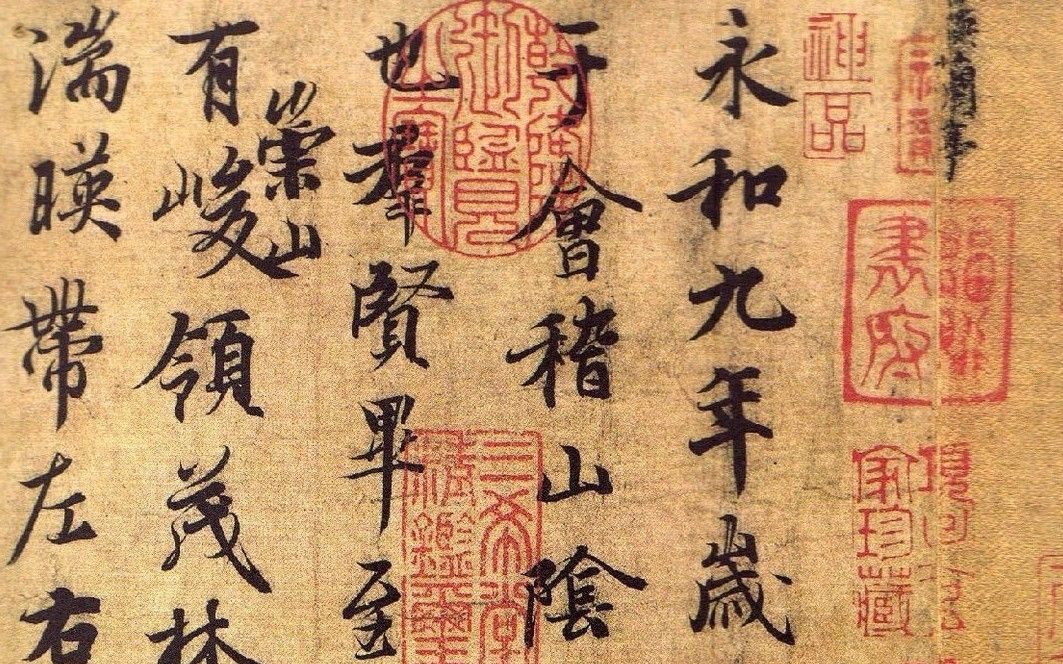 神品
書府
家珍藏
永和九年歲
于會稽山陰
也羣賢畢至
崇山
有峻領茂林
湍暎帶左右
乾隆御覽之寶
三希堂精鑒璽